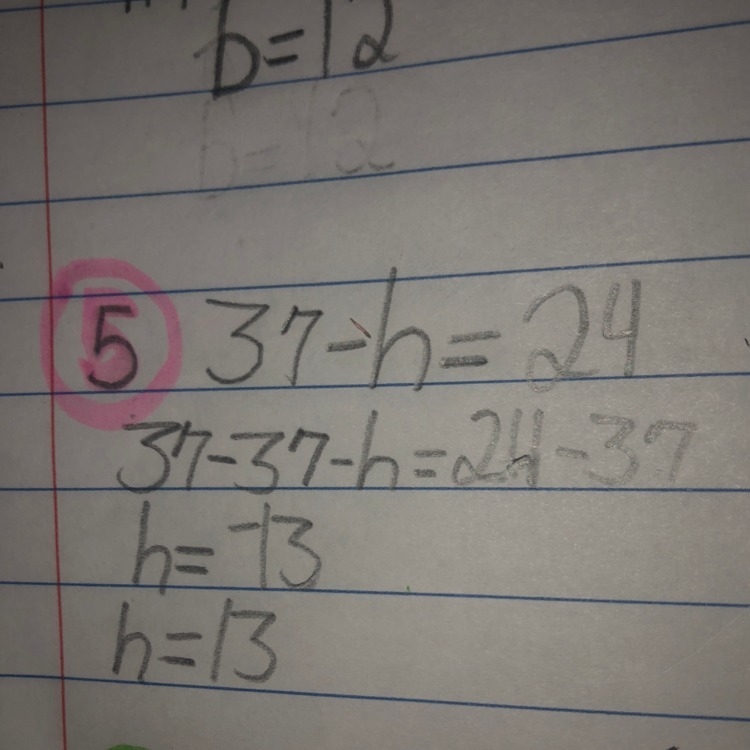 b=12
b=12
5 37-h=24
37-37-h=24-37
h=-13
h=13